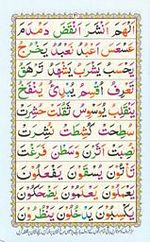 اَلْهَمَ اَنْشَرَ اَنْقَضَ دَمْدَمَ
عَسْعَسَ اَعْبُدُ نَعْبُدُ يَخْرُجُ
يَحْسَبُ يَشْرَبُ يَشْهَدُ تَرْهَقُ
اُقْسِمُ يُبْدِئُ يَنْفَخُ
يَنْقَلِبُ يُوَسْوِسُ ثَقُلَتْ حُشِرَتْ
سُطِحَتْ كُشِطَتْ نُشِرَتْ
نُصِبَتْ اَثَرْنَ وَسَطْنَ فَرَغْتَ
تَأْتُوْنَ يُسْقَوْنَ يَفْعَلُوْنَ
يَعْمَلُوْنَ يَعْلَمُوْنَ يَضْحَكُوْنَ
يَكْسِبُوْنَ يَدْخُلُوْنَ يَنْظُرُوْنَ